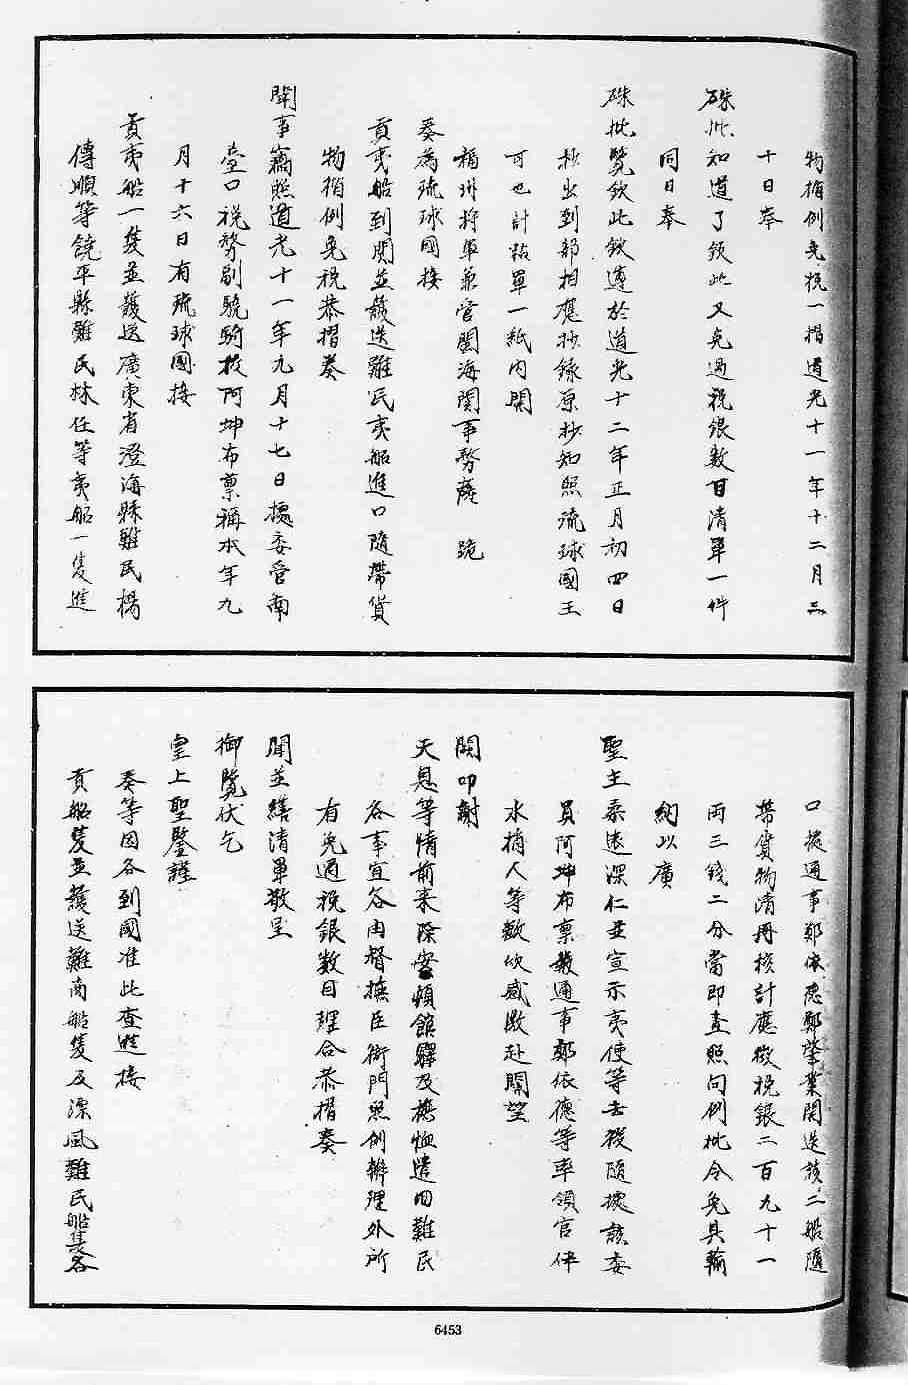 物循例免稅一摺道光十一年十二月三
十日奉
硃批知道了欽此又免過稅銀數目清單一件
同日奉
硃批覽欽此欽遵於道光十二年正月初四日
抄出到部相應抄錄原抄知照琉球國王
可也計粘單一紙內開
福州將軍兼管閩海關事務薩 跪
奏為琉球國接
貢夷船到關並護送難民夷船進口隨帶貨
物循例免稅恭摺奏
聞事竊照道光十一年九月十七日據委管南
臺口稅務副驍騎校阿坤布稟稱本年九
月十六日有琉球國接
貢夷船一隻並護送廣東省澄海縣難民楊
傳順等饒平縣難民林任等夷船一隻進
口據通事鄭依德鄭肇業開送該二船隨
帶貨物清冊核計應徵稅銀二百九十一
兩三錢二分當即查照向例批令免其輸
納以廣
聖主柔遠深仁並宣示夷使等去後隨據該委
員阿坤布稟報通事鄭依德等率領官伴
水梢人等歡欣感激赴關望
闕叩謝
天恩等情前來除安頓館驛及撫恤遣回難民
各事宜各由督撫臣衙門照例辦理外所
有免過稅銀數目理合恭摺奏
聞並繕清單敬呈
御覽伏乞
皇上聖鑒謹
奏等因各到國准此查進接
貢船隻並護送難商船隻及漂風難民船隻各
6453